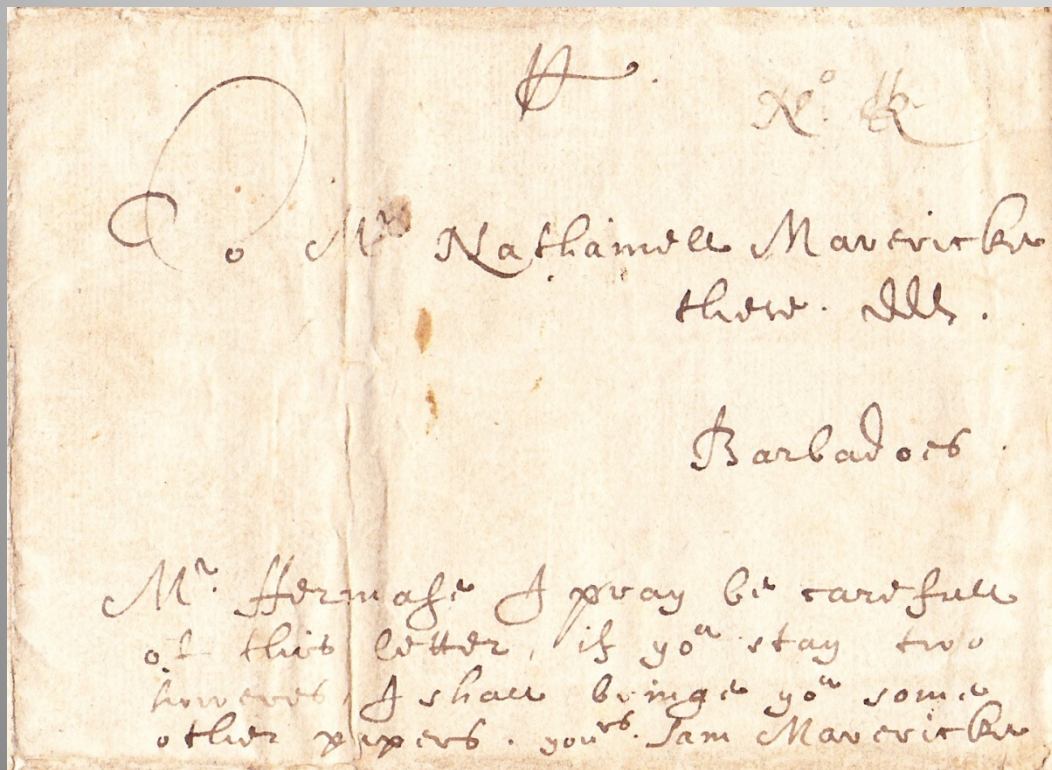 To Mr Nathaniell Mavericke
there.
Barbadoes
Mr. I pray be carefull
of this letter, if you stay two
howeres, I shall bringe you some
other papers. yours. Sam Mavericke